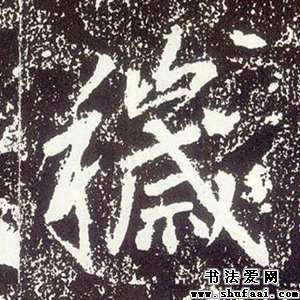 穢
书法爱网
www.shufaai.com